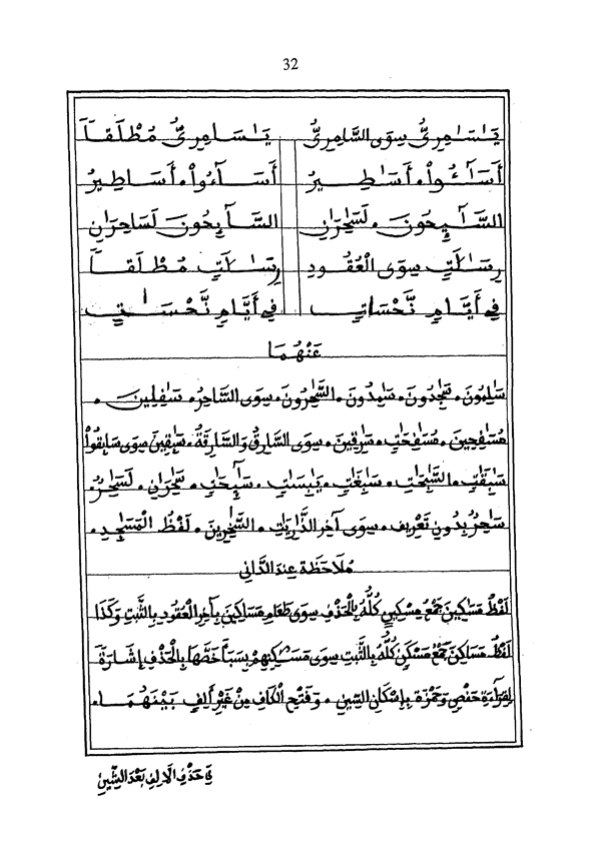 32
يَٰسَٰمِرِىُّ سِوَى السَّامِرِىُّ يَٰسَامِرِىُّ مُطْلَقاً
أَسَٰٓـُٔواْ. أَسَٰطِيرُ أَسَآءُواْ. أَسَاطِيرُ
السَّٰٓئِحُونَ. لَسَٰحِرَٰنِ السَّآئِحُونَ لَسَاحِرَانِ
رِسَٰلَٰتِ سِوَى الْعُقُودِ رِسَٰلَٰتِ مُطْلَقاً
فِى أَيَّامٍ نَّحْسَاتٍ فِى أَيَّامٍ نَّحْسَٰتٍ
عَنْهُمَا
سَٰلِمُونَ. سَٰجِدُونَ. سَٰمِدُونَ. السَّٰحِرُونَ. سِوَى السَّاحِرُ. سَٰفِلِينَ.
مُسَٰفِحِينَ. مُسَٰفِحَٰتٍ. سَٰرِقِينَ. سِوَى السَّارِقُ وَالسَّارِقَةُ. سَٰبِقِينَ سِوَى سَابِقُواْ
سَٰبِقَٰتِ. السَّٰبِحَٰتِ. سَٰبِغَٰتٍ. يَابِسَٰتٍ. سَٰٓئِحَٰتٍ. سَٰحِرَٰنِ. لَسَٰحِرٌ.
سَٰحِرٌ بِدُونِ تَعْرِيفٍ. سِوَى آخِرِ الذَّارِيَاتِ. السَّٰخِرِينَ. لَفْظُ الْمَسَٰجِدِ.
مُلَاحَظَة عِنْدَ الدَّانِى
لَفْظُ مَسَٰكِينَ جَمْعُ مِسْكِينٍ كُلُّهُ بِالْحَذْفِ سِوَى طَعَامِ مَسَاكِينَ بِآخِرِ الْعُقُودِ بِالثَّبْتِ وَكَذَا
لَفْظُ مَسَاكِنَ جَمْعُ مَسْكَنٍ كُلُّهُ بِالثَّبْتِ سِوَى مَسَٰكِنِهِمْ بِسَبَأَ خَصَّهَا بِالْحَذْفِ إِشَارَةً
لِقِرَآءَةِ حَفْصٍ وَحَمْزَةَ بِإِسْكَانِ السِّينِ. وَفَتْحِ الْكَافِ مِنْ غَيْرِ أَلِفٍ بَيْنَهُمَا.
فَاحْذِفِ الْأَلِفَ بَعْدَ السِّينِ